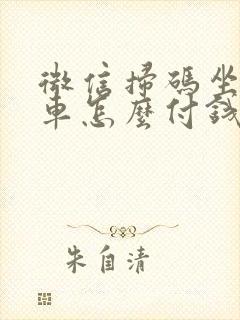 微信掃碼坐
車怎麼付錢
朱自清